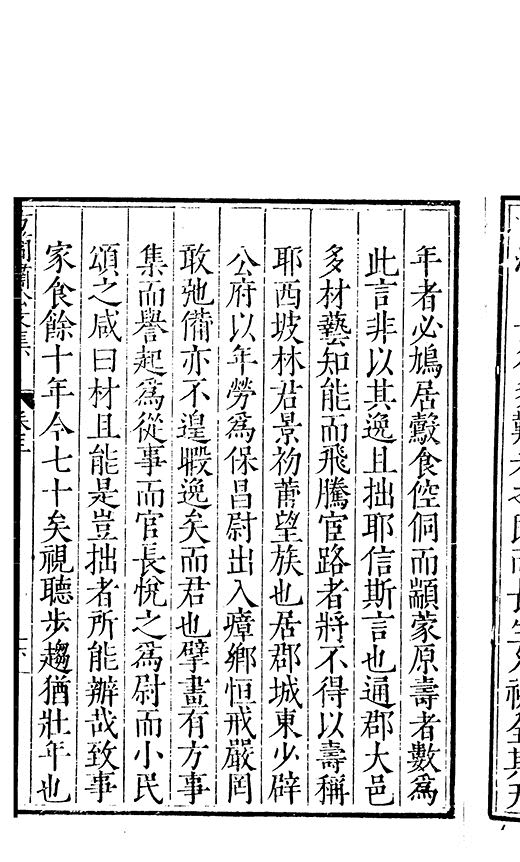 年者必鳩居鷇食倥侗而顓蒙原壽者數爲
此言非以其逸且拙耶信斯言也通郡大邑
多材藝知能而飛騰宦路者將不得以壽稱
耶西坡林君景初莆望族也居郡城東少辟
公府以年勞爲保昌尉出入瘴鄉恒戒嚴罔
敢弛備亦不遑暇逸矣而君也擘畫有方事
集而譽起爲從事而官長悅之爲尉而小民
頌之咸曰材且能是豈拙者所能辦哉致事
家食餘十年今七十矣視聽步趨猶壯年也